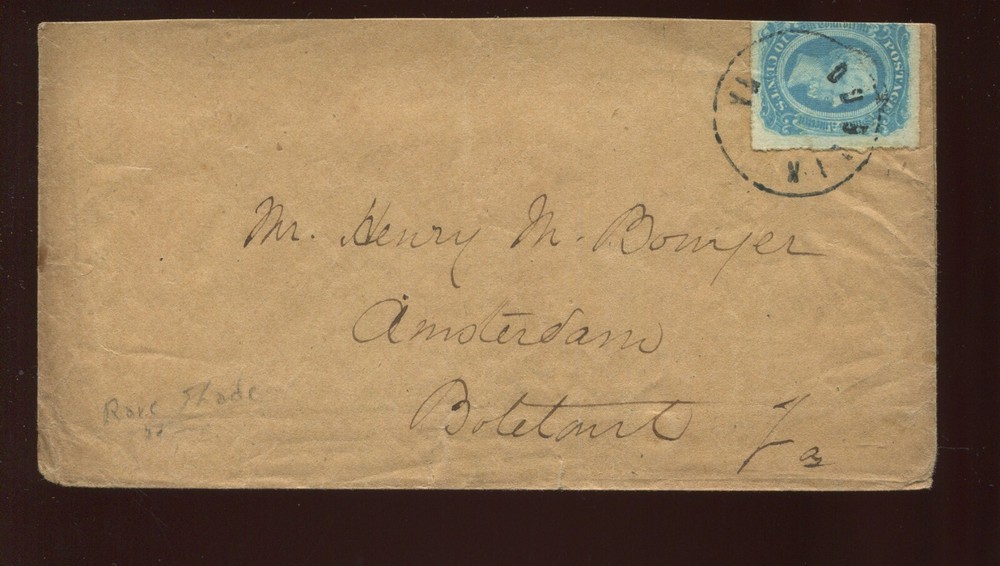 POSTAGE
TEN CENTS
VA
Mr. Henry M. Bowyer
Amsterdam
Botetourt Va
Rare Shade